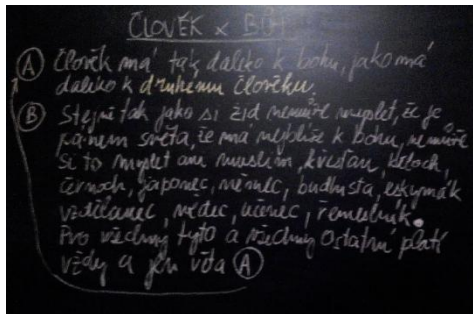 ČLOVĚK x BŮH
A Člověk má tak daleko k bohu, jako má
daleko k druhému člověku.
B Stejně tak jako si žid nemůže myslet, že je
pánem světa, že má nejblíže k bohu, nemůže
si to myslet ani muslim, křesťan,
černoch, japonec, němec, budhista, eskymák
vzdělanec, vědec, učenec, řemeslník.
Pro všechny tyto a všechny ostatní platí
vždy a jen věta A